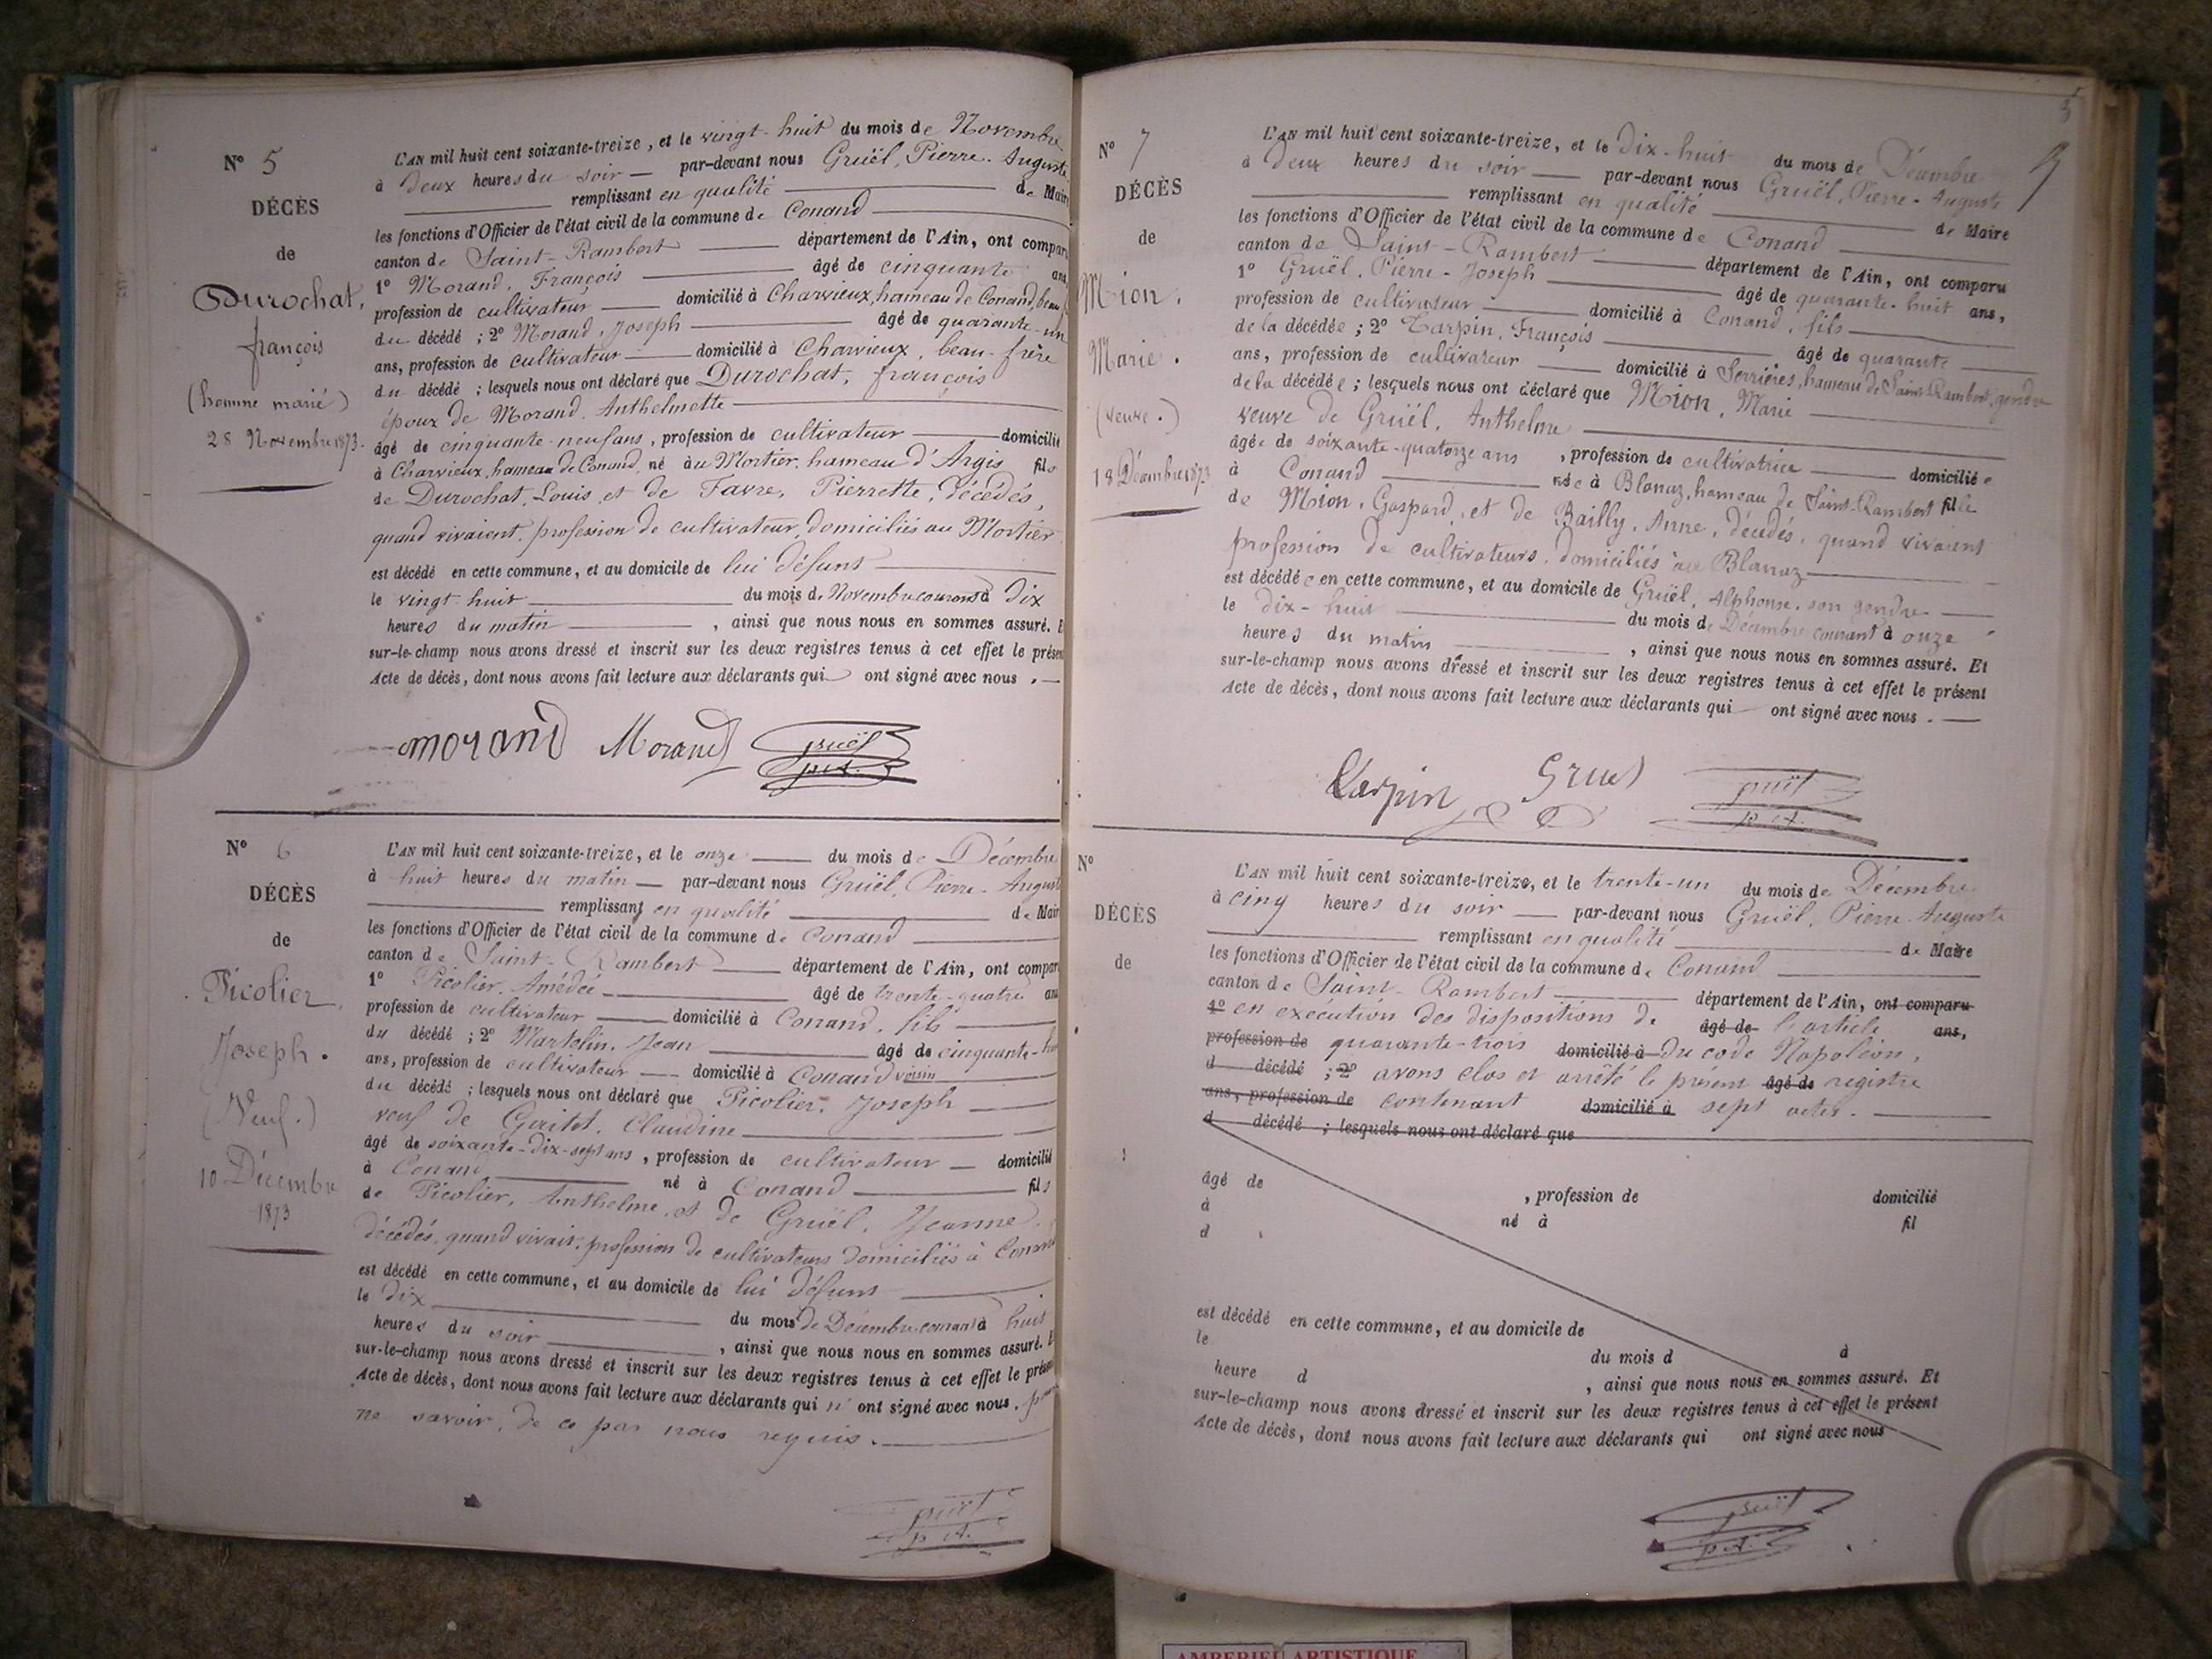 N° 5
DÉCÈS
de
Durochat,
françois
(homme marié)
28 Novembre 1873.
L'AN mil huit cent soixante-treize, et le vingt-huit du mois de Novembre
à deux heures du soir — par-devant nous Gruël, Pierre-Auguste
remplissant en qualité de Maire
les fonctions d'Officier de l'état civil de la commune de Conand
canton de Saint-Rambert département de l'Ain, ont compar
1° Morand, François âgé de cinquante ans
profession de cultivateur domicilié à Charvieux, hameau de Conand, beau
du décédé ; 2° Morand, Joseph âgé de quarante-un
ans, profession de cultivateur domicilié à Charvieux, beau-frère
du décédé ; lesquels nous ont déclaré que Durochat, françois
époux de Morand, Anthelmette
âgé de cinquante-neuf ans, profession de cultivateur domicilié
à Charvieux, hameau de Conand, né au Mortier, hameau d'Argis fils
de Durochat, Louis, et de Favre, Pierrette, décédés,
quand vivaient, profession de cultivateur, domiciliés au Mortier
est décédé en cette commune, et au domicile de lui défunt
le vingt-huit du mois de Novembre courant à dix
heures du matin, ainsi que nous nous en sommes assuré. E
sur-le-champ nous avons dressé et inscrit sur les deux registres tenus à cet effet le présen
Acte de décès, dont nous avons fait lecture aux déclarants qui ont signé avec nous.
morand Morand gruël
p.A.
N° 6
DÉCÈS
de
Picolier,
Joseph.
(Veuf.)
10 Décembre
1873
L'AN mil huit cent soixante-treize, et le onze du mois de Décembre
à huit heures du matin — par-devant nous Gruël, Pierre-Auguste
remplissant en qualité de Mair
les fonctions d'Officier de l'état civil de la commune de Conand
canton de Saint-Rambert département de l'Ain, ont compar
1° Picolier, Amédée âgé de trente-quatre ans
profession de cultivateur domicilié à Conand, fils
du décédé ; 2° Martelin, Jean âgé de cinquante-
ans, profession de cultivateur domicilié à Conand voisin
du décédé ; lesquels nous ont déclaré que Picolier, Joseph
veuf de Claudine
âgé de soixante-dix-sept ans, profession de cultivateur domicilié
à Conand né à Conand fils
de Picolier, Anthelme, et de Gruël, Jeanne,
décédés, quand vivait, profession de cultivateurs domiciliés à Conand
est décédé en cette commune, et au domicile de lui défunt
le dix du mois de Décembre courant à huit
heures du soir, ainsi que nous nous en sommes assuré. E
sur-le-champ nous avons dressé et inscrit sur les deux registres tenus à cet effet le présen
Acte de décès, dont nous avons fait lecture aux déclarants qui n'ont signé avec nous, pour
ne savoir, de ce par nous requis.
gruël
p.A.
5
N° 7
DÉCÈS
de
Mion,
Marie.
(veuve.)
18 Décembre 1873
L'AN mil huit cent soixante-treize, et le dix-huit du mois de Décembre
à deux heures du soir — par-devant nous Gruël, Pierre-Auguste
remplissant en qualité de Maire
les fonctions d'Officier de l'état civil de la commune de Conand
canton de Saint-Rambert département de l'Ain, ont comparu
1° Gruël, Pierre-Joseph âgé de quarante-huit ans,
profession de cultivateur domicilié à Conand, fils
de la décédée ; 2° Tarpin, François âgé de quarante
ans, profession de cultivateur domicilié à Serrières, hameau de Saint-Rambert, gendre
de la décédée ; lesquels nous ont déclaré que Mion, Marie
veuve de Gruël, Anthelme
âgée de soixante-quatorze ans, profession de cultivatrice domiciliée
à Conand née à Blanaz, hameau de Saint-Rambert fille
de Mion, Gaspard, et de Bailly, Anne, décédés, quand vivaient
profession de cultivateurs, domiciliés à Blanaz
est décédée en cette commune, et au domicile de Gruël, Alphonse, son gendre
le dix-huit du mois de Décembre courant à onze
heures du matin, ainsi que nous nous en sommes assuré. Et
sur-le-champ nous avons dressé et inscrit sur les deux registres tenus à cet effet le présent
Acte de décès, dont nous avons fait lecture aux déclarants qui ont signé avec nous.
Tarpin Gruel gruël
p.A.
N°
DÉCÈS
de
L'AN mil huit cent soixante-treize, et le trente-un du mois de Décembre
à cinq heures du soir — par-devant nous Gruël, Pierre-Auguste
remplissant en qualité de Maire
les fonctions d'Officier de l'état civil de la commune de Conand
canton de Saint-Rambert département de l'Ain, ont comparu
1° en exécution des dispositions de âgé de l'article ans,
profession de quarante-trois domicilié à du code Napoléon,
d décédé ; 2° avons clos et arrêté le présent âgé de registre
ans, profession de contenant domicilié à sept actes.
d décédé ; lesquels nous ont déclaré que
âgé de , profession de domicilié
à né à fil
d
est décédé en cette commune, et au domicile de
le du mois d à
heure d , ainsi que nous nous en sommes assuré. Et
sur-le-champ nous avons dressé et inscrit sur les deux registres tenus à cet effet le présent
Acte de décès, dont nous avons fait lecture aux déclarants qui ont signé avec nous
gruël
p.A.
AMBERIEU ARTISTIQUE